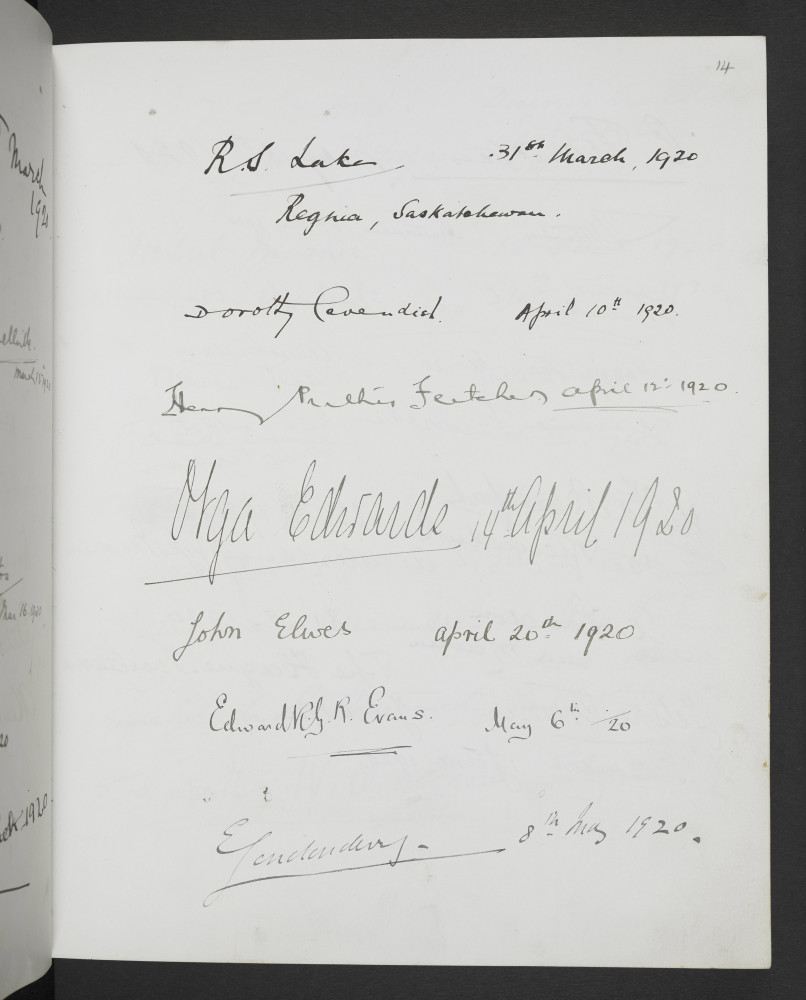 14
R.S. Lake 31st March, 1920
Regnia, Saskatchewan.
Dorothy Cavendish April 10th 1920.
Henry Fletcher april 12: 1920.
Olga Edwards 14th April 1920
John Elwes april 20th 1920
Edward R.G.R. Evans. May 6th /20
8th May 1920.
March
1920
1920